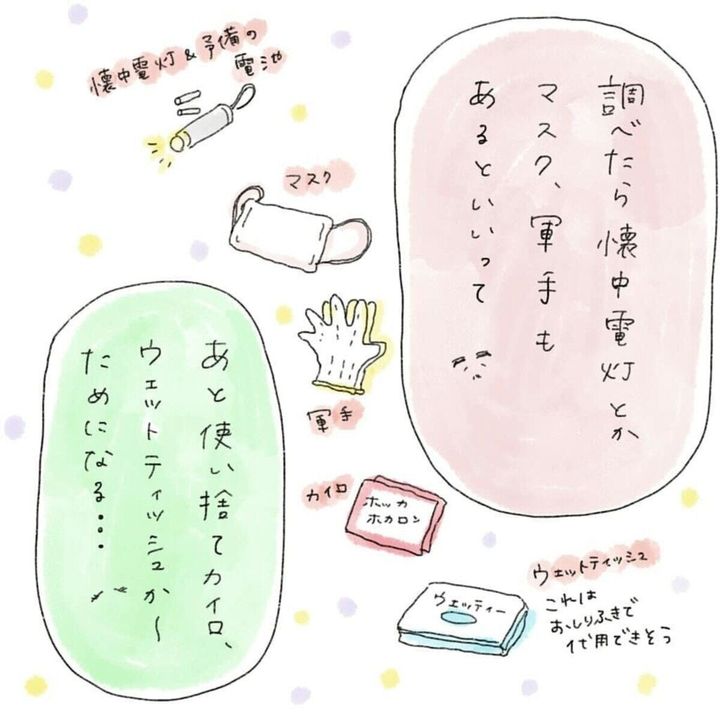 調べたら懐中電灯とか
マスク、軍手も
あるといいって
懐中電灯&予備の
電池
マスク
軍手
あと使い捨てカイロ、
ウェットティッシュか〜
ためになる・・・
カイロ
ホッカ
ホカロン
ウェットティッシュ
これは
おしりふきで
代用できそう
ウェッティー